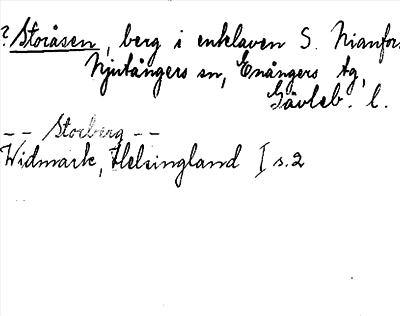 ? Storåsen, berg i enklaven S. Nianfors
Njutångers sn, Enångers tg,
Gävleb. l.
-- Storberg --
Widmark, Helsingland I s.2